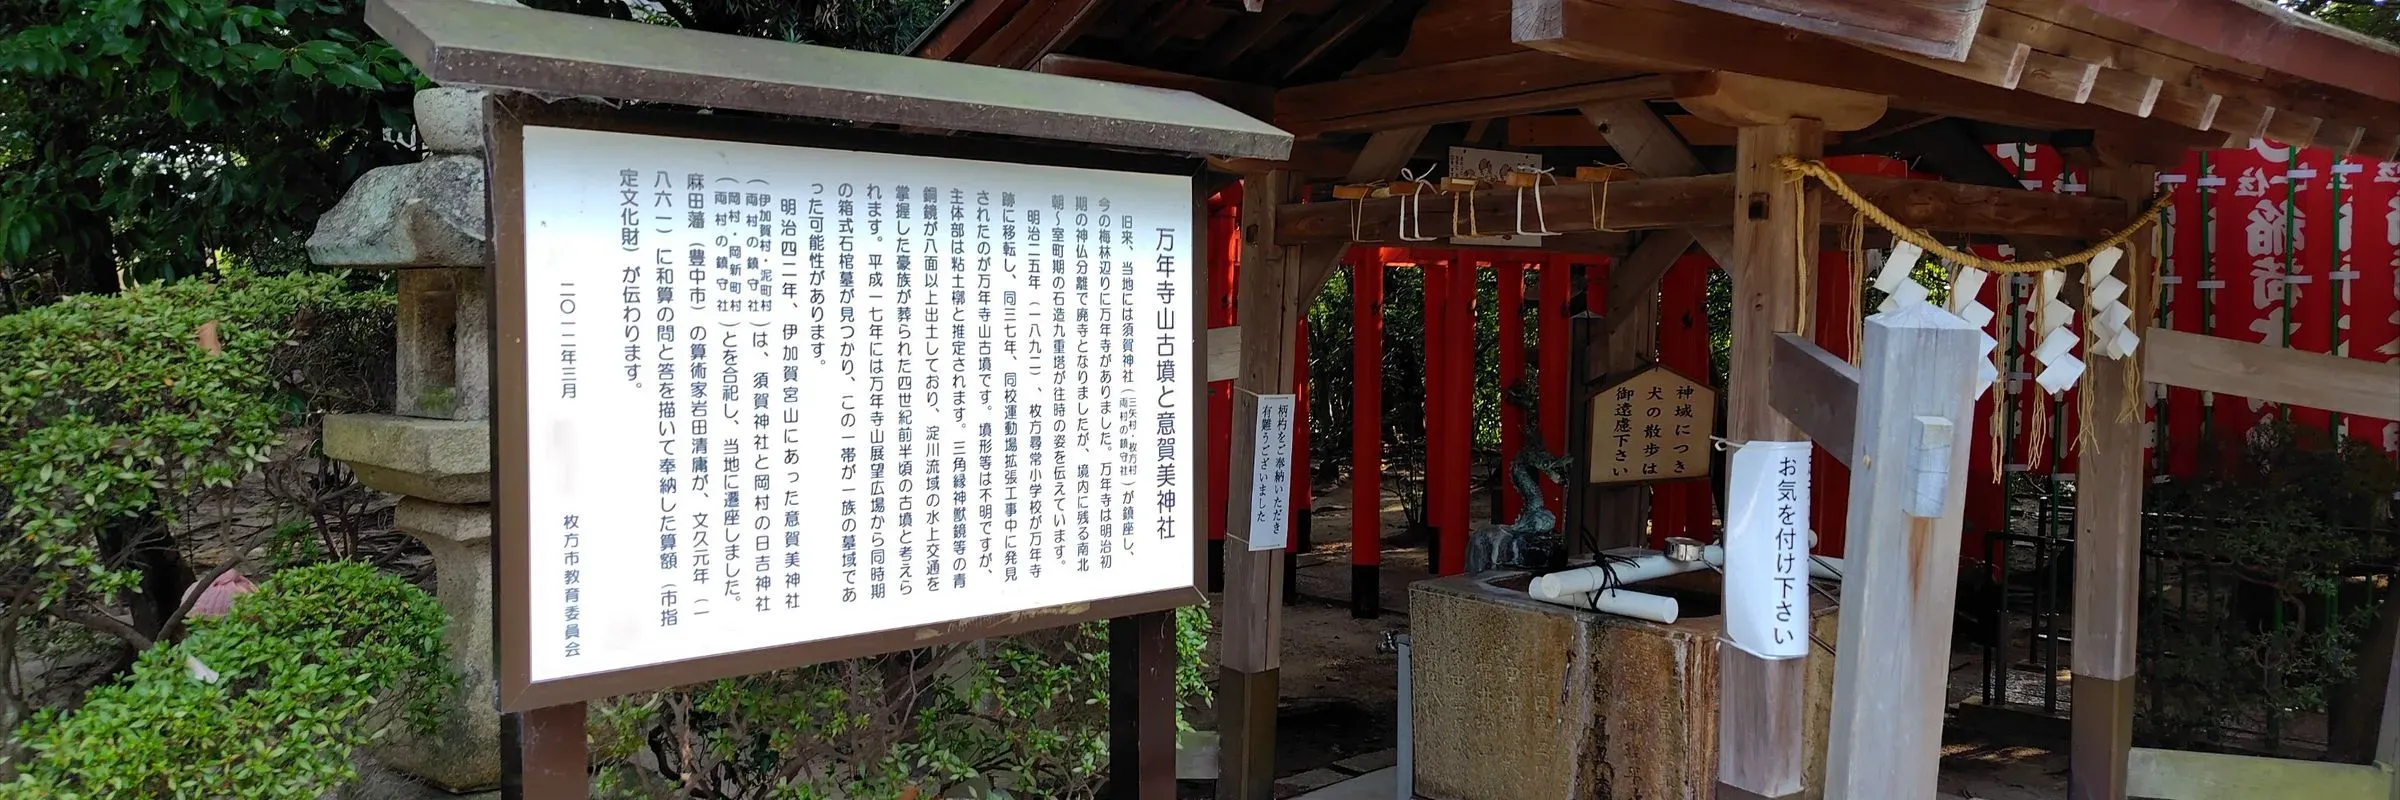 万年寺山古墳と意賀美神社
旧来、当地には須賀神社（三矢村・枚方村両村の鎮守社）が鎮座し、
今の梅林辺りに万年寺がありました。万年寺は明治初
期の神仏分離で廃寺となりましたが、境内に残る南北
朝～室町期の石造九重塔が往時の姿を伝えています。
明治二五年（一八九二）、枚方尋常小学校が万年寺
跡に移転し、同三七年、同校運動場拡張工事中に発見
されたのが万年寺山古墳です。墳形等は不明ですが、
主体部は粘土槨と推定されます。三角縁神獣鏡等の青
銅鏡が八面以上出土しており、淀川流域の水上交通を
掌握した豪族が葬られた四世紀前半頃の古墳と考えら
れます。平成一七年には万年寺山展望広場から同時期
の箱式石棺墓が見つかり、この一帯が一族の墓域であ
った可能性があります。
明治四二年、伊加賀宮山にあった意賀美神社
（伊加賀村・泥町村両村の鎮守社）は、須賀神社と岡村の日吉神社
（岡村・岡新町村両村の鎮守社）とを合祀し、当地に遷座しました。
麻田藩（豊中市）の算術家岩田清庸が、文久元年（一
八六一）に和算の問と答を描いて奉納した算額（市指
定文化財）が伝わります。
二〇一二年三月
枚方市教育委員会
柄杓をご奉納いただき
有難うございました
神域につき
犬の散歩は
御遠慮下さい
お気を付け下さい
稲荷